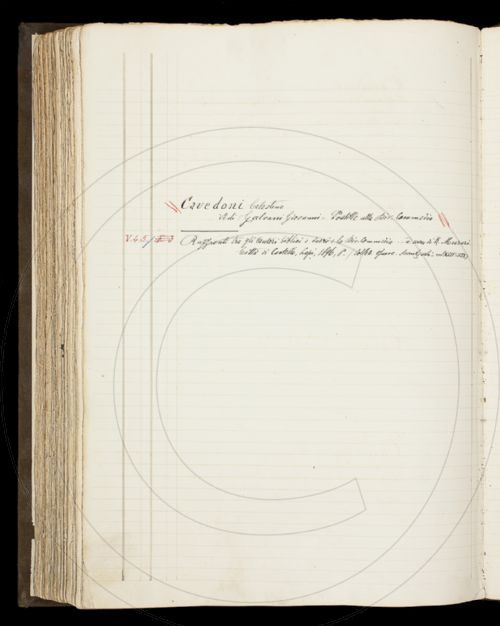 Cavedoni Celestino
Vedi Galvani Giovanni - Postille alla Div. Commedia
V. 4. 5. Raffronti tra gli autori biblici e sacri e la Div. Commedia ... a cura di R. Murari
Città di Castello, Lapi, 1896, 8º. (Collez. Opusc. Dant.